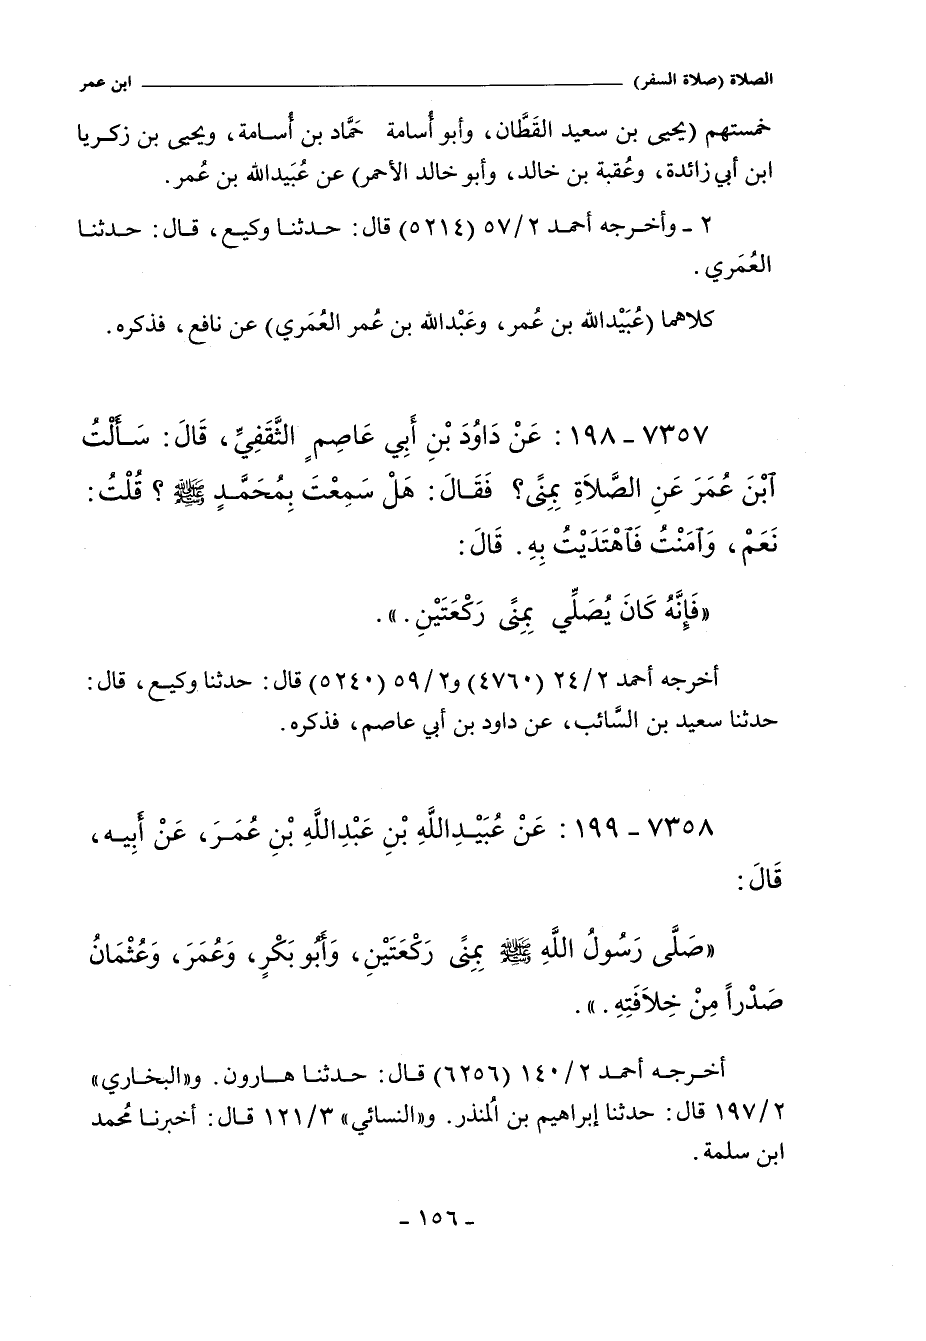 الصلاة (صلاة السفر) ــــــــــ ابن عمر
خمستهم (يحيى بن سعيد القَطَّان، وأبو أُسامة حَمَّاد بن أُسامة، ويحيى بن زكريا
ابن أبي زائدة، وعُقبة بن خالد، وأبو خالد الأحمر) عن عُبَيدالله بن عُمر.
٢ ـ وأخرجه أحمد ٥٧/٢ (٥٢١٤) قال: حدثنا وكيع، قال: حدثنا
العُمَري.
كلاهما (عُبَيْدالله بن عُمر، وعَبْدالله بن عُمر العُمَري) عن نافع، فذكره.
٧٣٥٧ ـ ١٩٨ : عَنْ دَاوُدَ بْنِ أَبِي عَاصِمٍ الثَّقَفِيِّ، قَالَ: سَأَلْتُ
ٱبْنَ عُمَرَ عَنِ الصَّلاَةِ بِمِنًى؟ فَقَالَ: هَلْ سَمِعْتَ بِمُحَمَّدٍ ﷺ ؟ قُلْتُ:
نَعَمْ، وَآمَنْتُ فَٱهْتَدَيْتُ بِهِ. قَالَ:
«فَإِنَّهُ كَانَ يُصَلِّي بِمِنًى رَكْعَتَيْنِ.».
أخرجه أحمد ٢٤/٢ (٤٧٦٠) و٥٩/٢ (٥٢٤٠) قال: حدثنا وكيع، قال:
حدثنا سعيد بن السَّائب، عن داود بن أبي عاصم، فذكره.
٧٣٥٨ ـ ١٩٩ : عَنْ عُبَيْدِاللَّهِ بْنِ عَبْدِاللَّهِ بْنِ عُمَرَ، عَنْ أَبِيهِ،
قَالَ:
«صَلَّى رَسُولُ اللَّهِ ﷺ بِمِنًى رَكْعَتَيْنِ، وَأَبُو بَكْرٍ، وَعُمَرَ، وَعُثْمَانُ
صَدْراً مِنْ خِلاَفَتِهِ.».
أخرجه أحمد ١٤٠/٢ (٦٢٥٦) قال: حدثنا هارون. و«البخاري»
١٩٧/٢ قال: حدثنا إبراهيم بن المُنذر. و«النسائي» ١٢١/٣ قال: أخبرنا مُحمد
ابن سلمة.
ـ ١٥٦ ـ